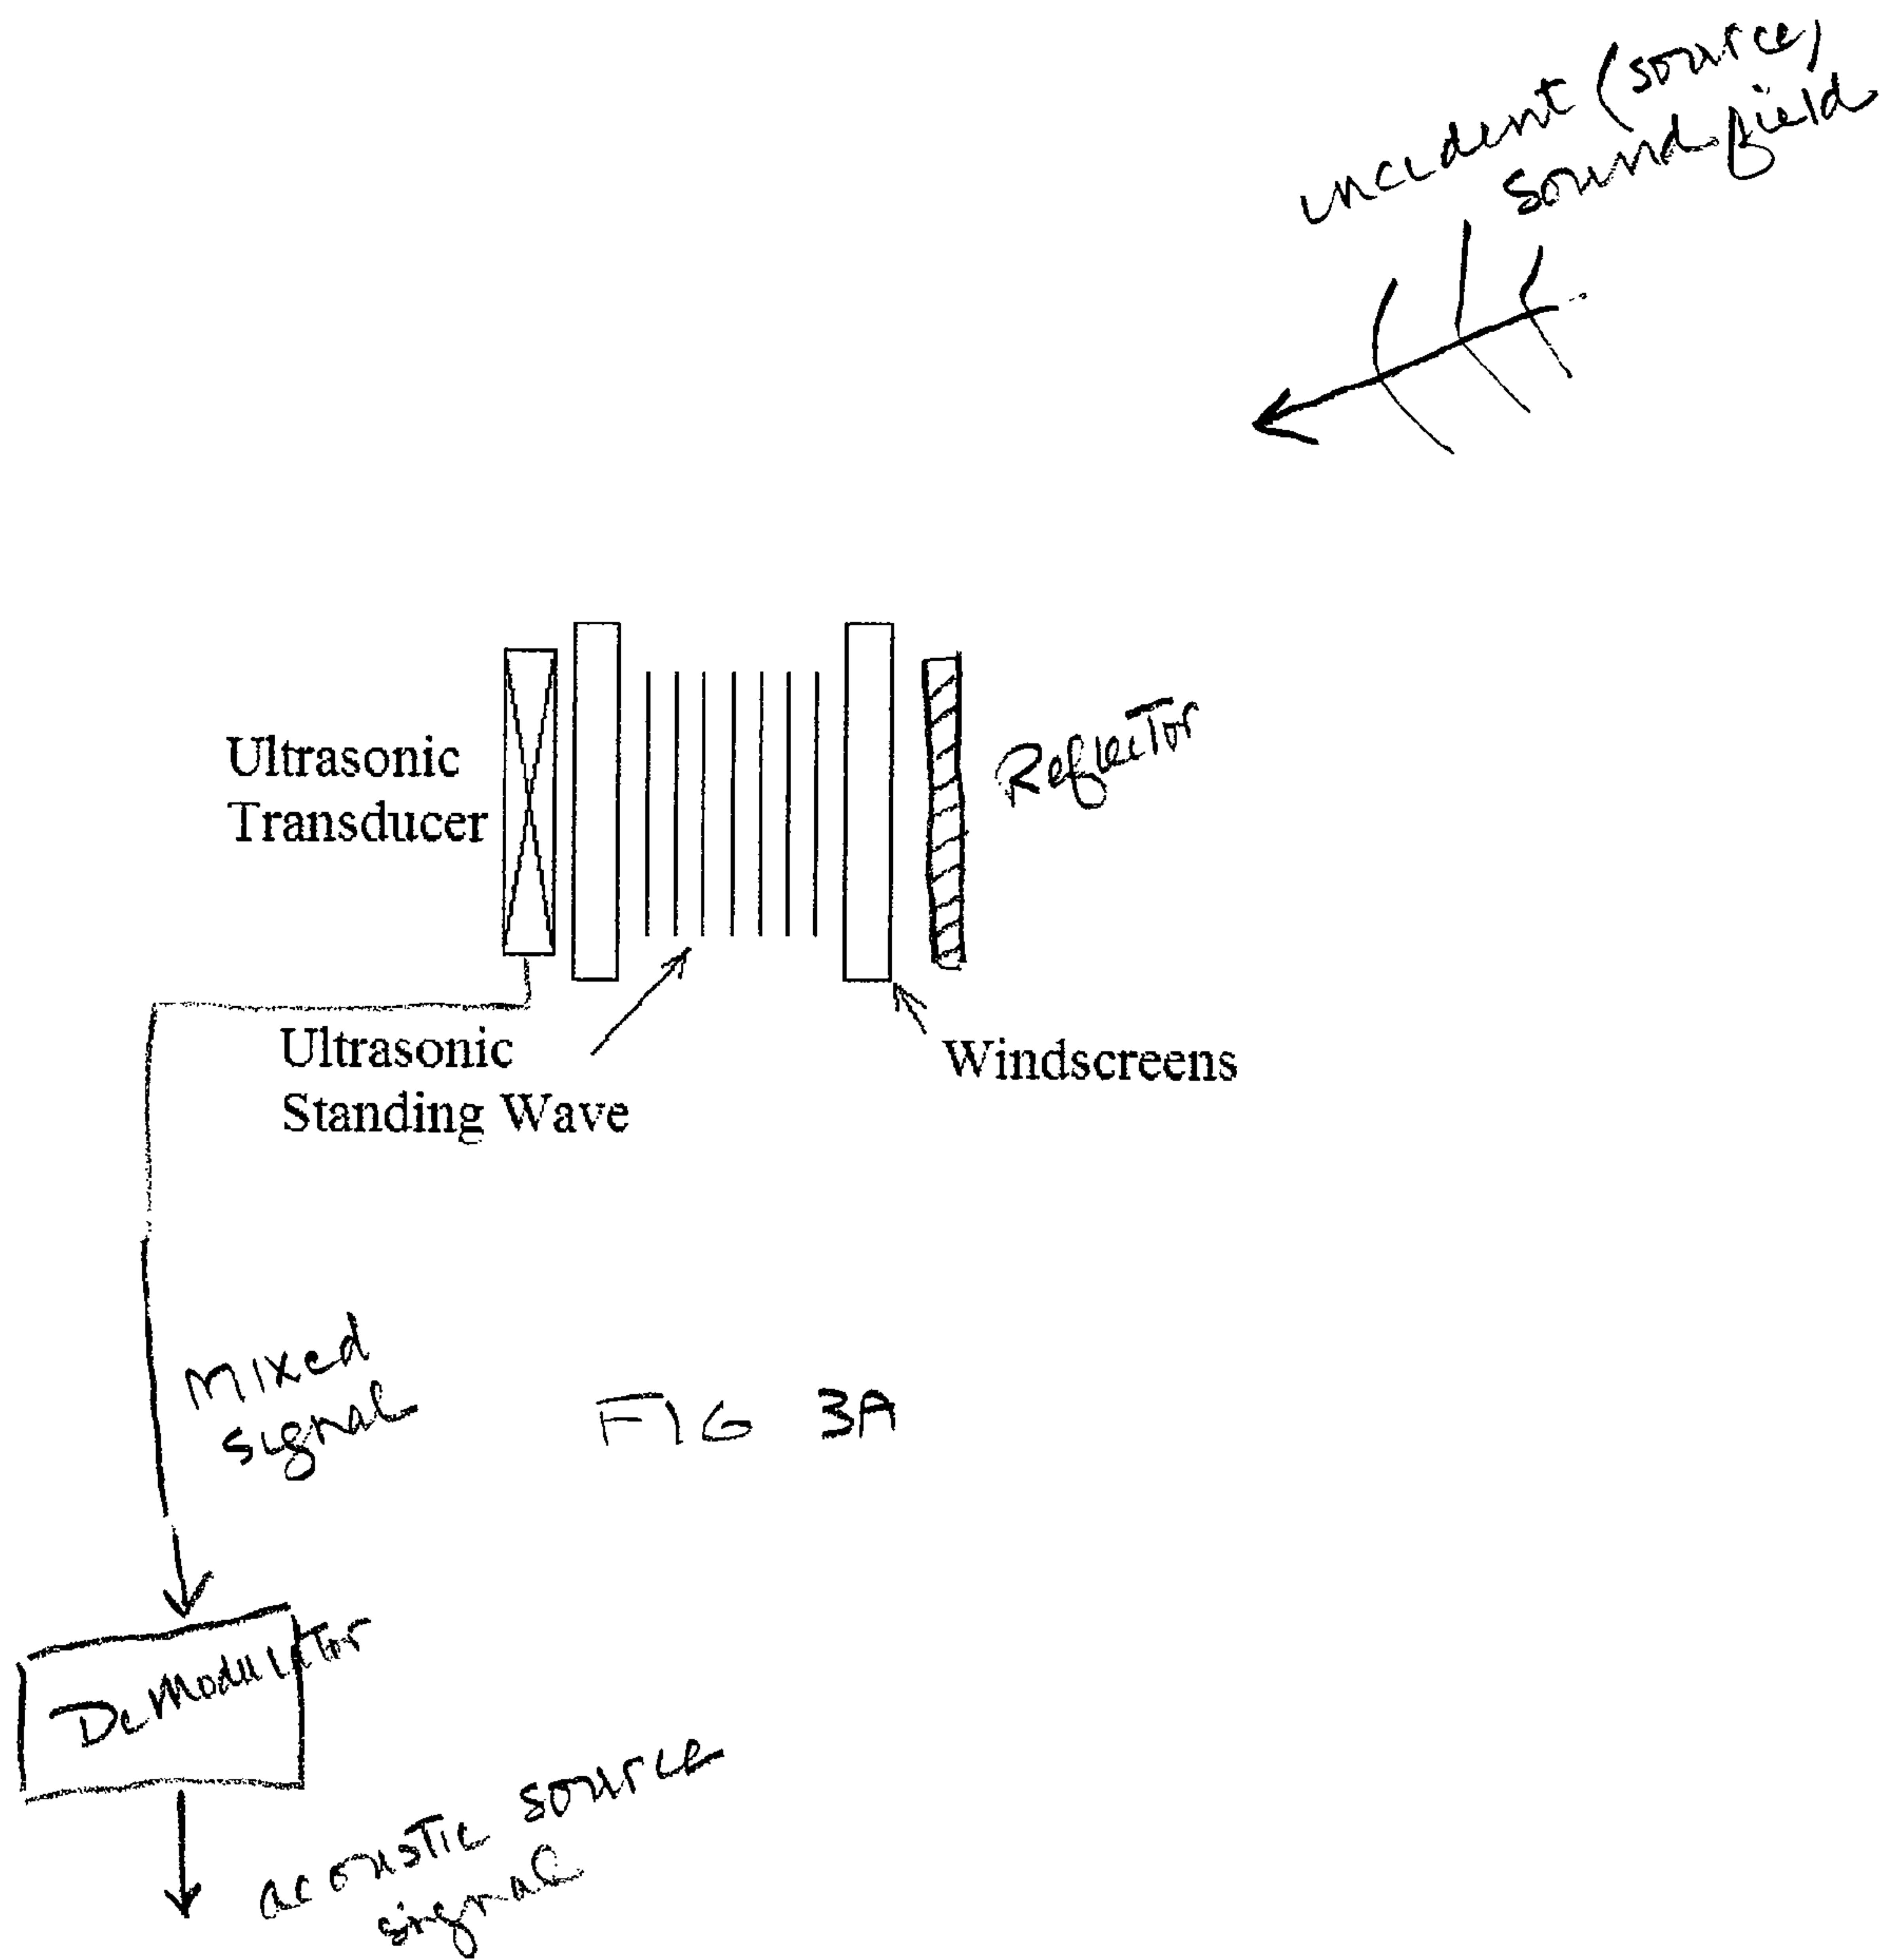 incident (source)
sound field
Ultrasonic
Transducer
Reflector
Ultrasonic
Standing Wave
Windscreens
Mixed
signal
FIG 3A
DeModulator
acoustic source
signal